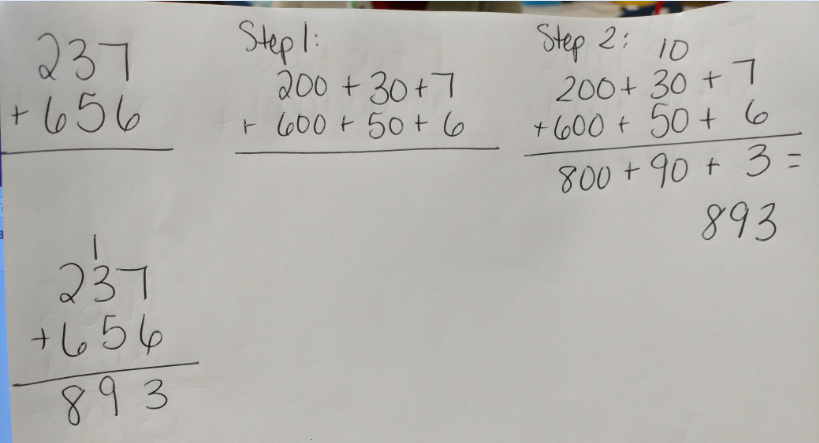 237
+ 656
Step 1:
200 + 30 + 7
+ 600 + 50 + 6
Step 2:
10
200 + 30 + 7
+ 600 + 50 + 6
800 + 90 + 3 =
893
1
237
+ 656
893